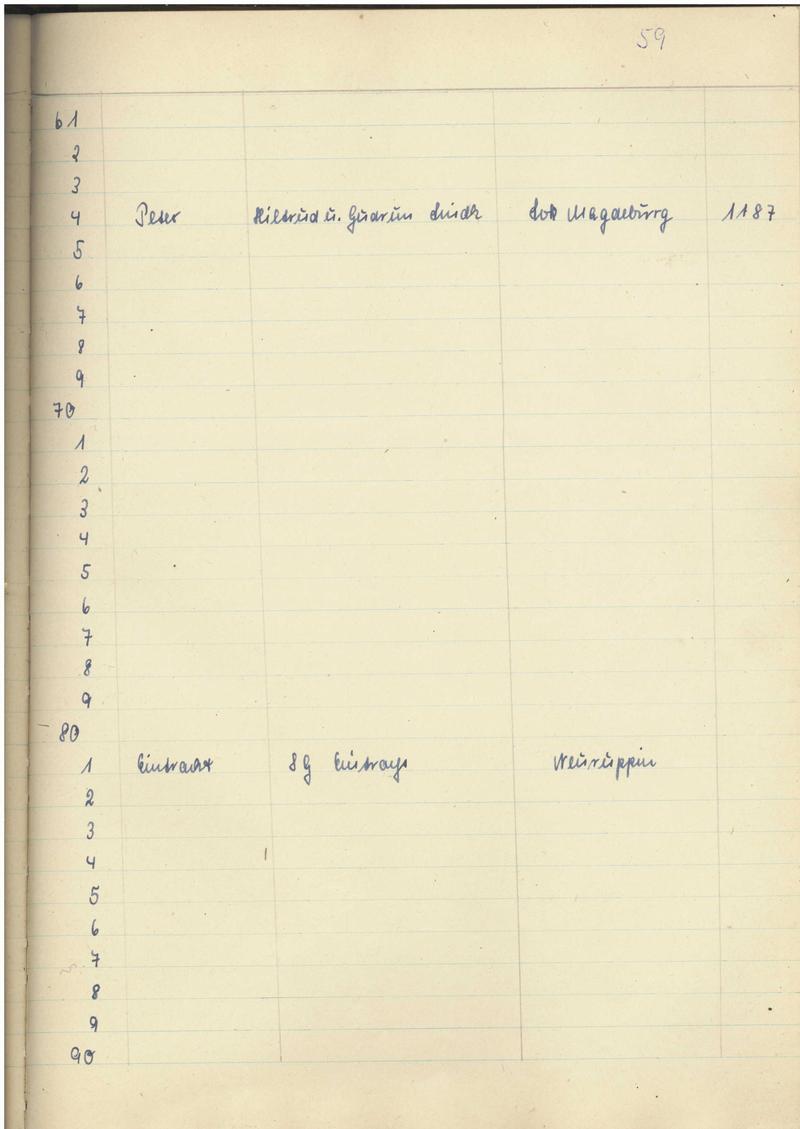 59
61
2
3
4 Peter Hiltrud u. Gudrun Lok Magdeburg 1187
5
6
7
8
9
70
1
2
3
4
5
6
7
8
9
80
1 Eintracht SG Neuruppin
2
3
4
5
6
7
8
9
90